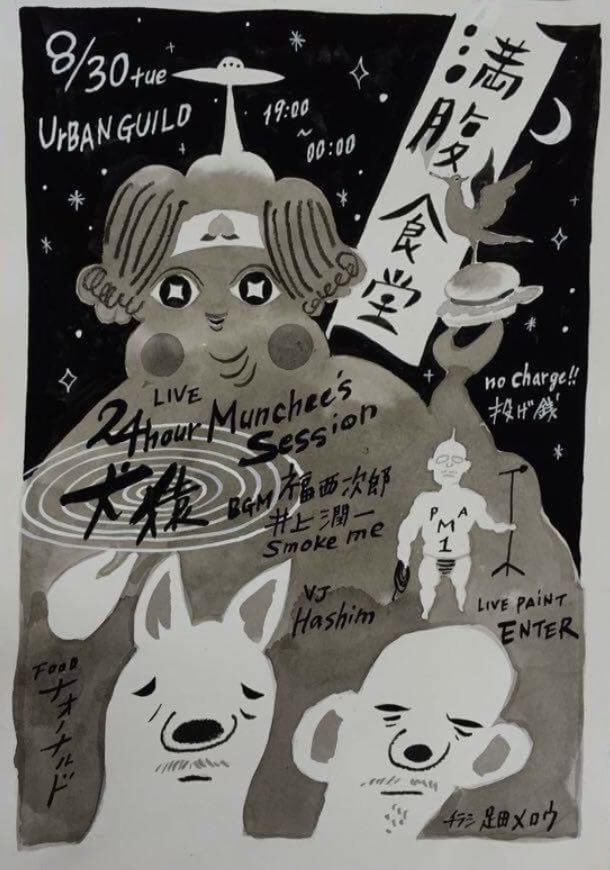 8/30 tue
UrBANGUILD
19:00
~
00:00
満腹食堂
no charge!!
投げ銭
LIVE
24hour Munchee's
Session
犬猿
BGM 福西次郎
井上潤一
Smoke me
PMA
1
VJ
Hashim
LIVE PAINT
ENTER
FOOD
ナオナルド
チラシ 足田メロウ